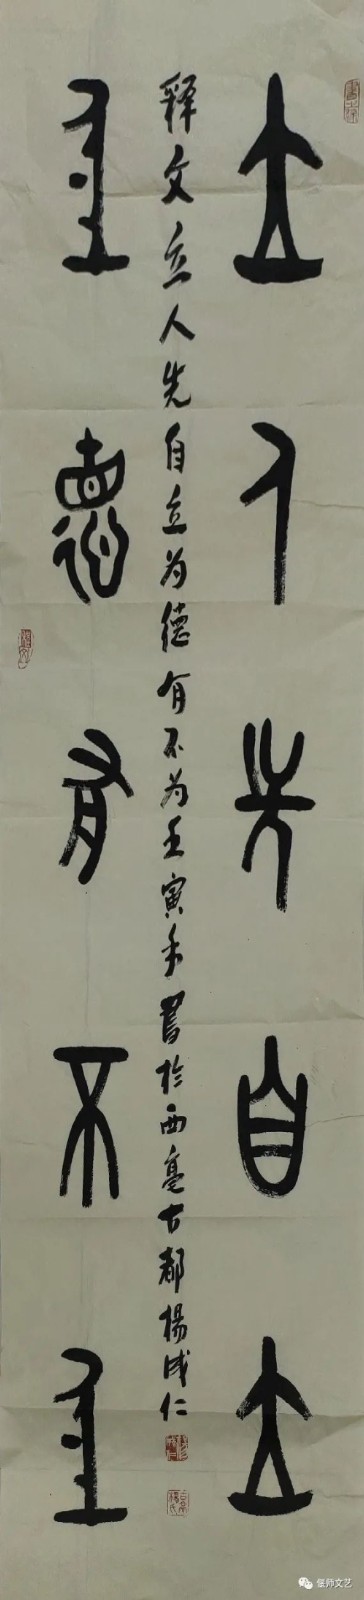 立人先自立
为德有不为
释文立人先自立为德有不为壬寅年書於西亳古都楊成仁
偃师文艺